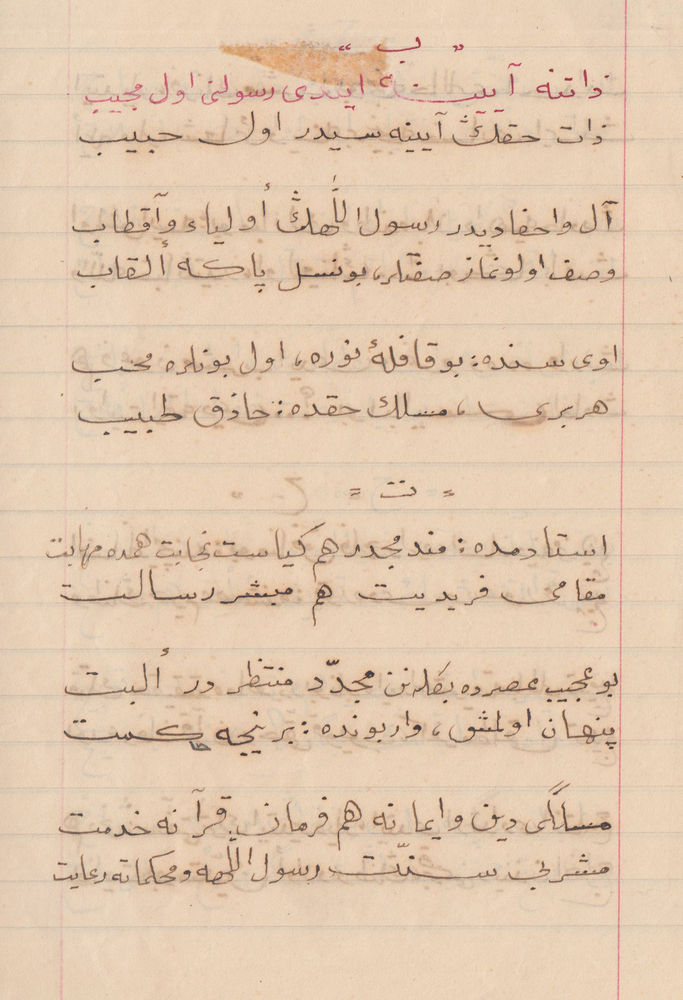 ب
ذاتنه آيينه ايتدى رسولنى اول مجيب
ذات حقڭ آيينه سيدر اول حبيب
آل واحفاديدر رسول اللّٰهڭ أولياء وآقطاب
وصف اولونماز صفتلر، بونسل پاكه ألقاب
اوى سنده: بو قافلهٔ نوره، اول بونلره محب
هر برى، مسلك حقده: حاذق طبيب
= تت =
استادمده: مندمجدر هم كياست نجابت همده مهابت
مقامى فريديت هم مبشر رسالت
بو عجيب عصرده بكلهنن مجدّد منتظر در ألبت
پنهان اولمشق، وار بونده: بر نيجه حكمت
مسلكى دين وايمانه هم فرمان قرآنه خدمت
مشربى سنّت رسول اللّٰهه ومحكماته رعايت